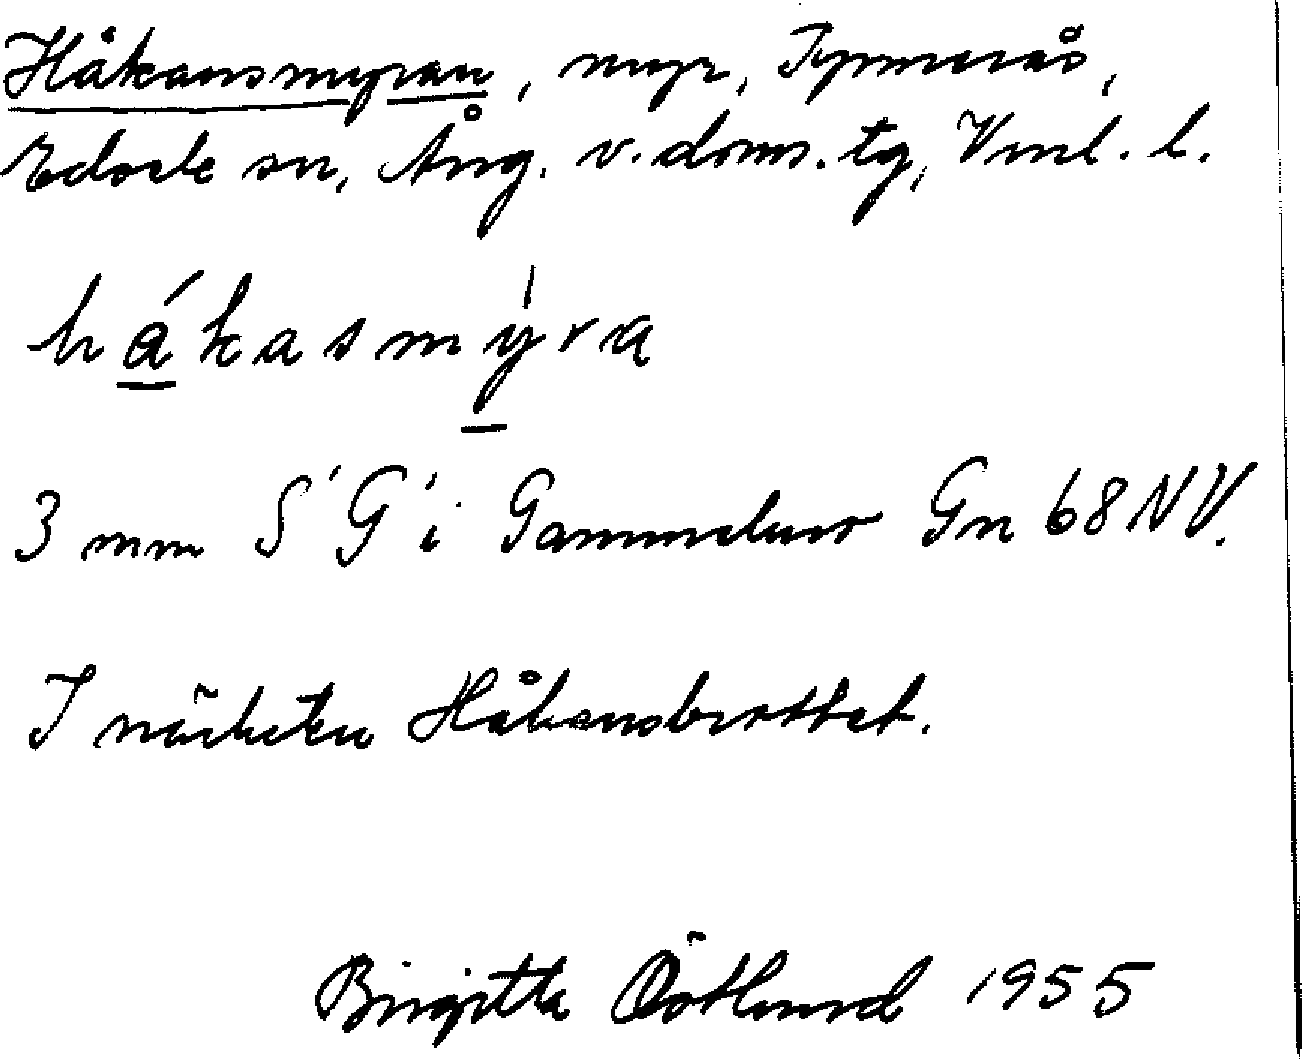 Håkansmyran, myr, Typmarås,
Edsele sn, Ång. v. doms. tg, Vnl. l.
hákasmýra
3 mm S 'G' i Gammelmo Gn 68 NV.
I närheten Håkansbrottet.
Birgitta Östlund 1955